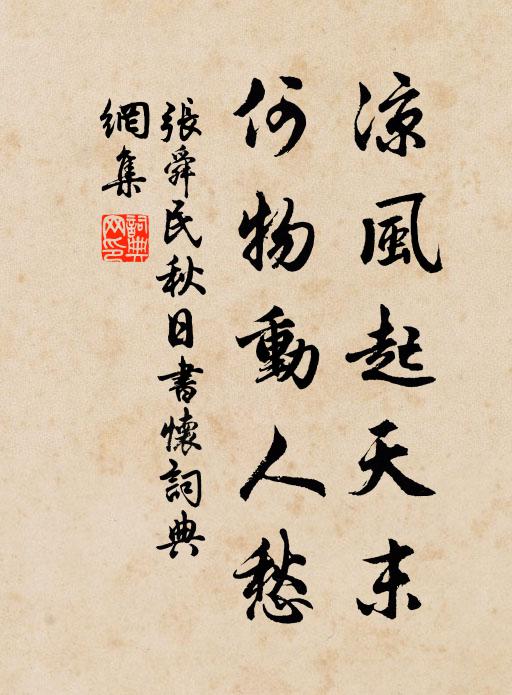 凉風起天末
何物動人愁
張舜民秋日書懷詞典
網集
詞典網印